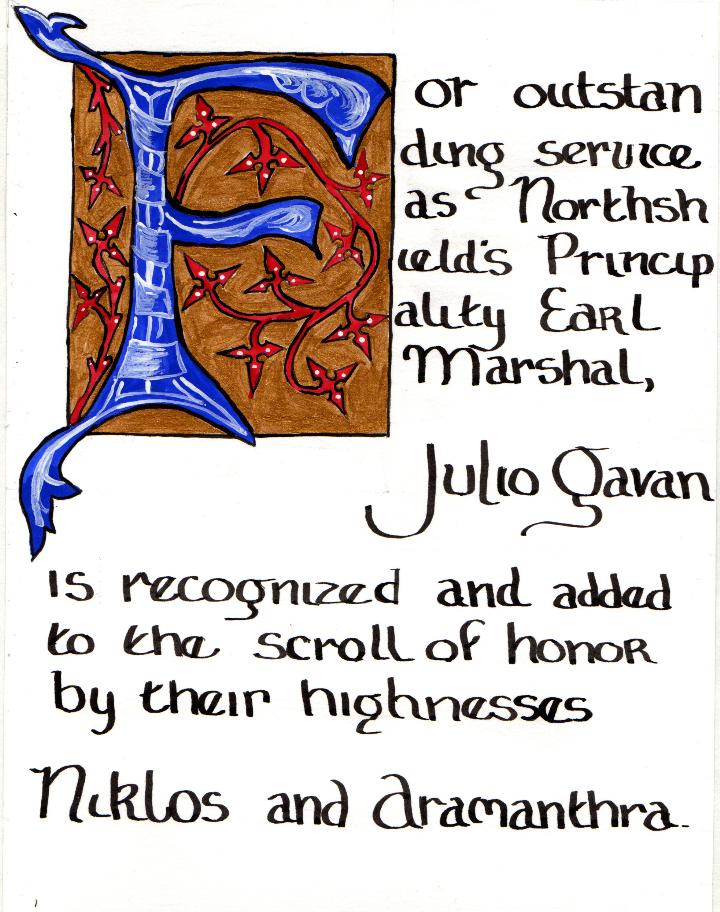 For outstan
ding service
as Northsh
ield's Princip
ality Earl
Marshal,
Julio Gavan
is recognized and added
to the scroll of honor
by their highnesses
Niklos and Aramanthra.